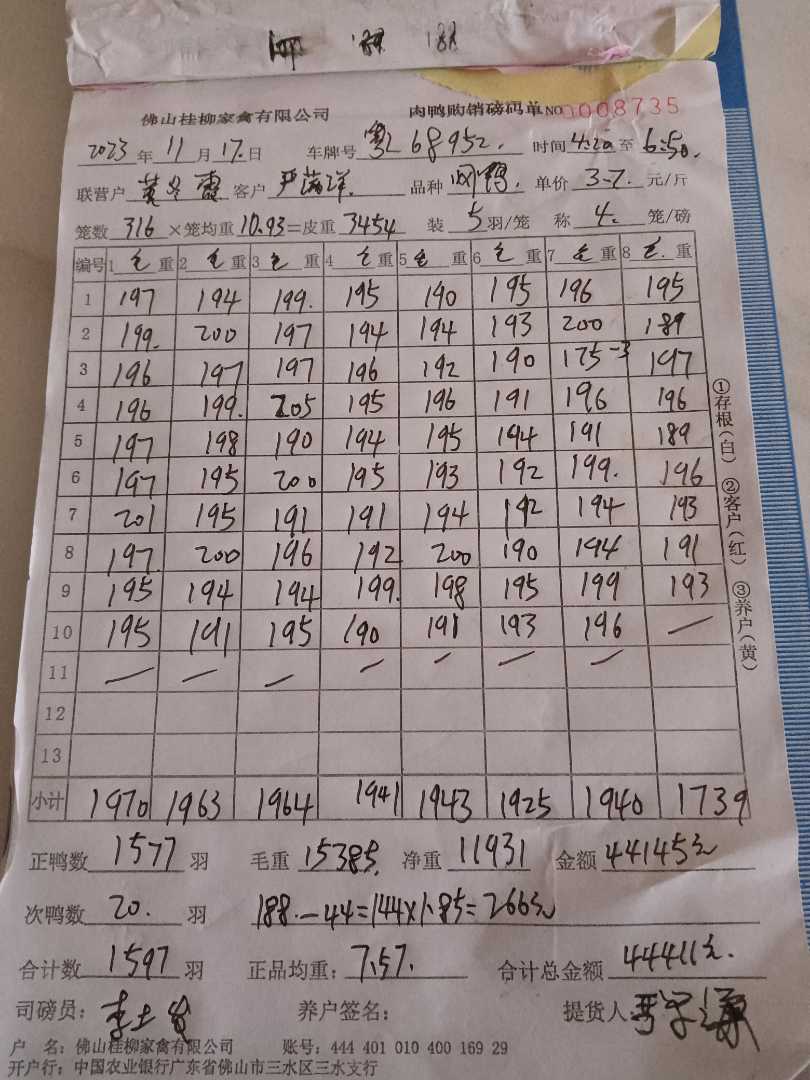 佛山桂柳家禽有限公司 肉鸭购销磅码单 NO 0008735
2023年11月17日 车牌号 粤L68952 时间 4:20 至 6:50
联营户 客户 严 品种 单价 3.7 元/斤
笼数 316 ×笼均重 10.93=皮重 3454 装 5 羽/笼 称 4 笼/磅
编号 1 毛重 2 毛重 3 毛重 4 毛重 5 毛重 6 毛重 7 毛重 8 毛重
1 197 194 199 195 190 195 196 195
2 199 200 197 194 194 193 200 189
3 196 197 197 196 192 190 175-3 197
4 196 199 205 195 196 191 196 196
5 197 198 190 194 195 194 191 189
6 197 195 200 195 193 192 199 196
7 201 195 191 191 194 192 194 193
8 197 200 196 192 200 190 194 191
9 195 194 194 199 198 195 199 193
10 195 191 195 190 191 193 196 —
11 — — — — — — —
12
13
小计 1970 1963 1964 1941 1943 1925 1940 1739
①存根(白) ②客户(红) ③养户(黄)
正鸭数 1577 羽 毛重 15385 净重 11931 金额 44145元
次鸭数 20. 羽 188.-44=144×1.85=266元
合计数 1597 羽 正品均重: 7.57. 合计总金额 44411元.
司磅员: 李 养户签名: 提货人 严
户 名: 佛山桂柳家禽有限公司 账号: 444 401 010 400 169 29
开户行: 中国农业银行广东省佛山市三水区三水支行